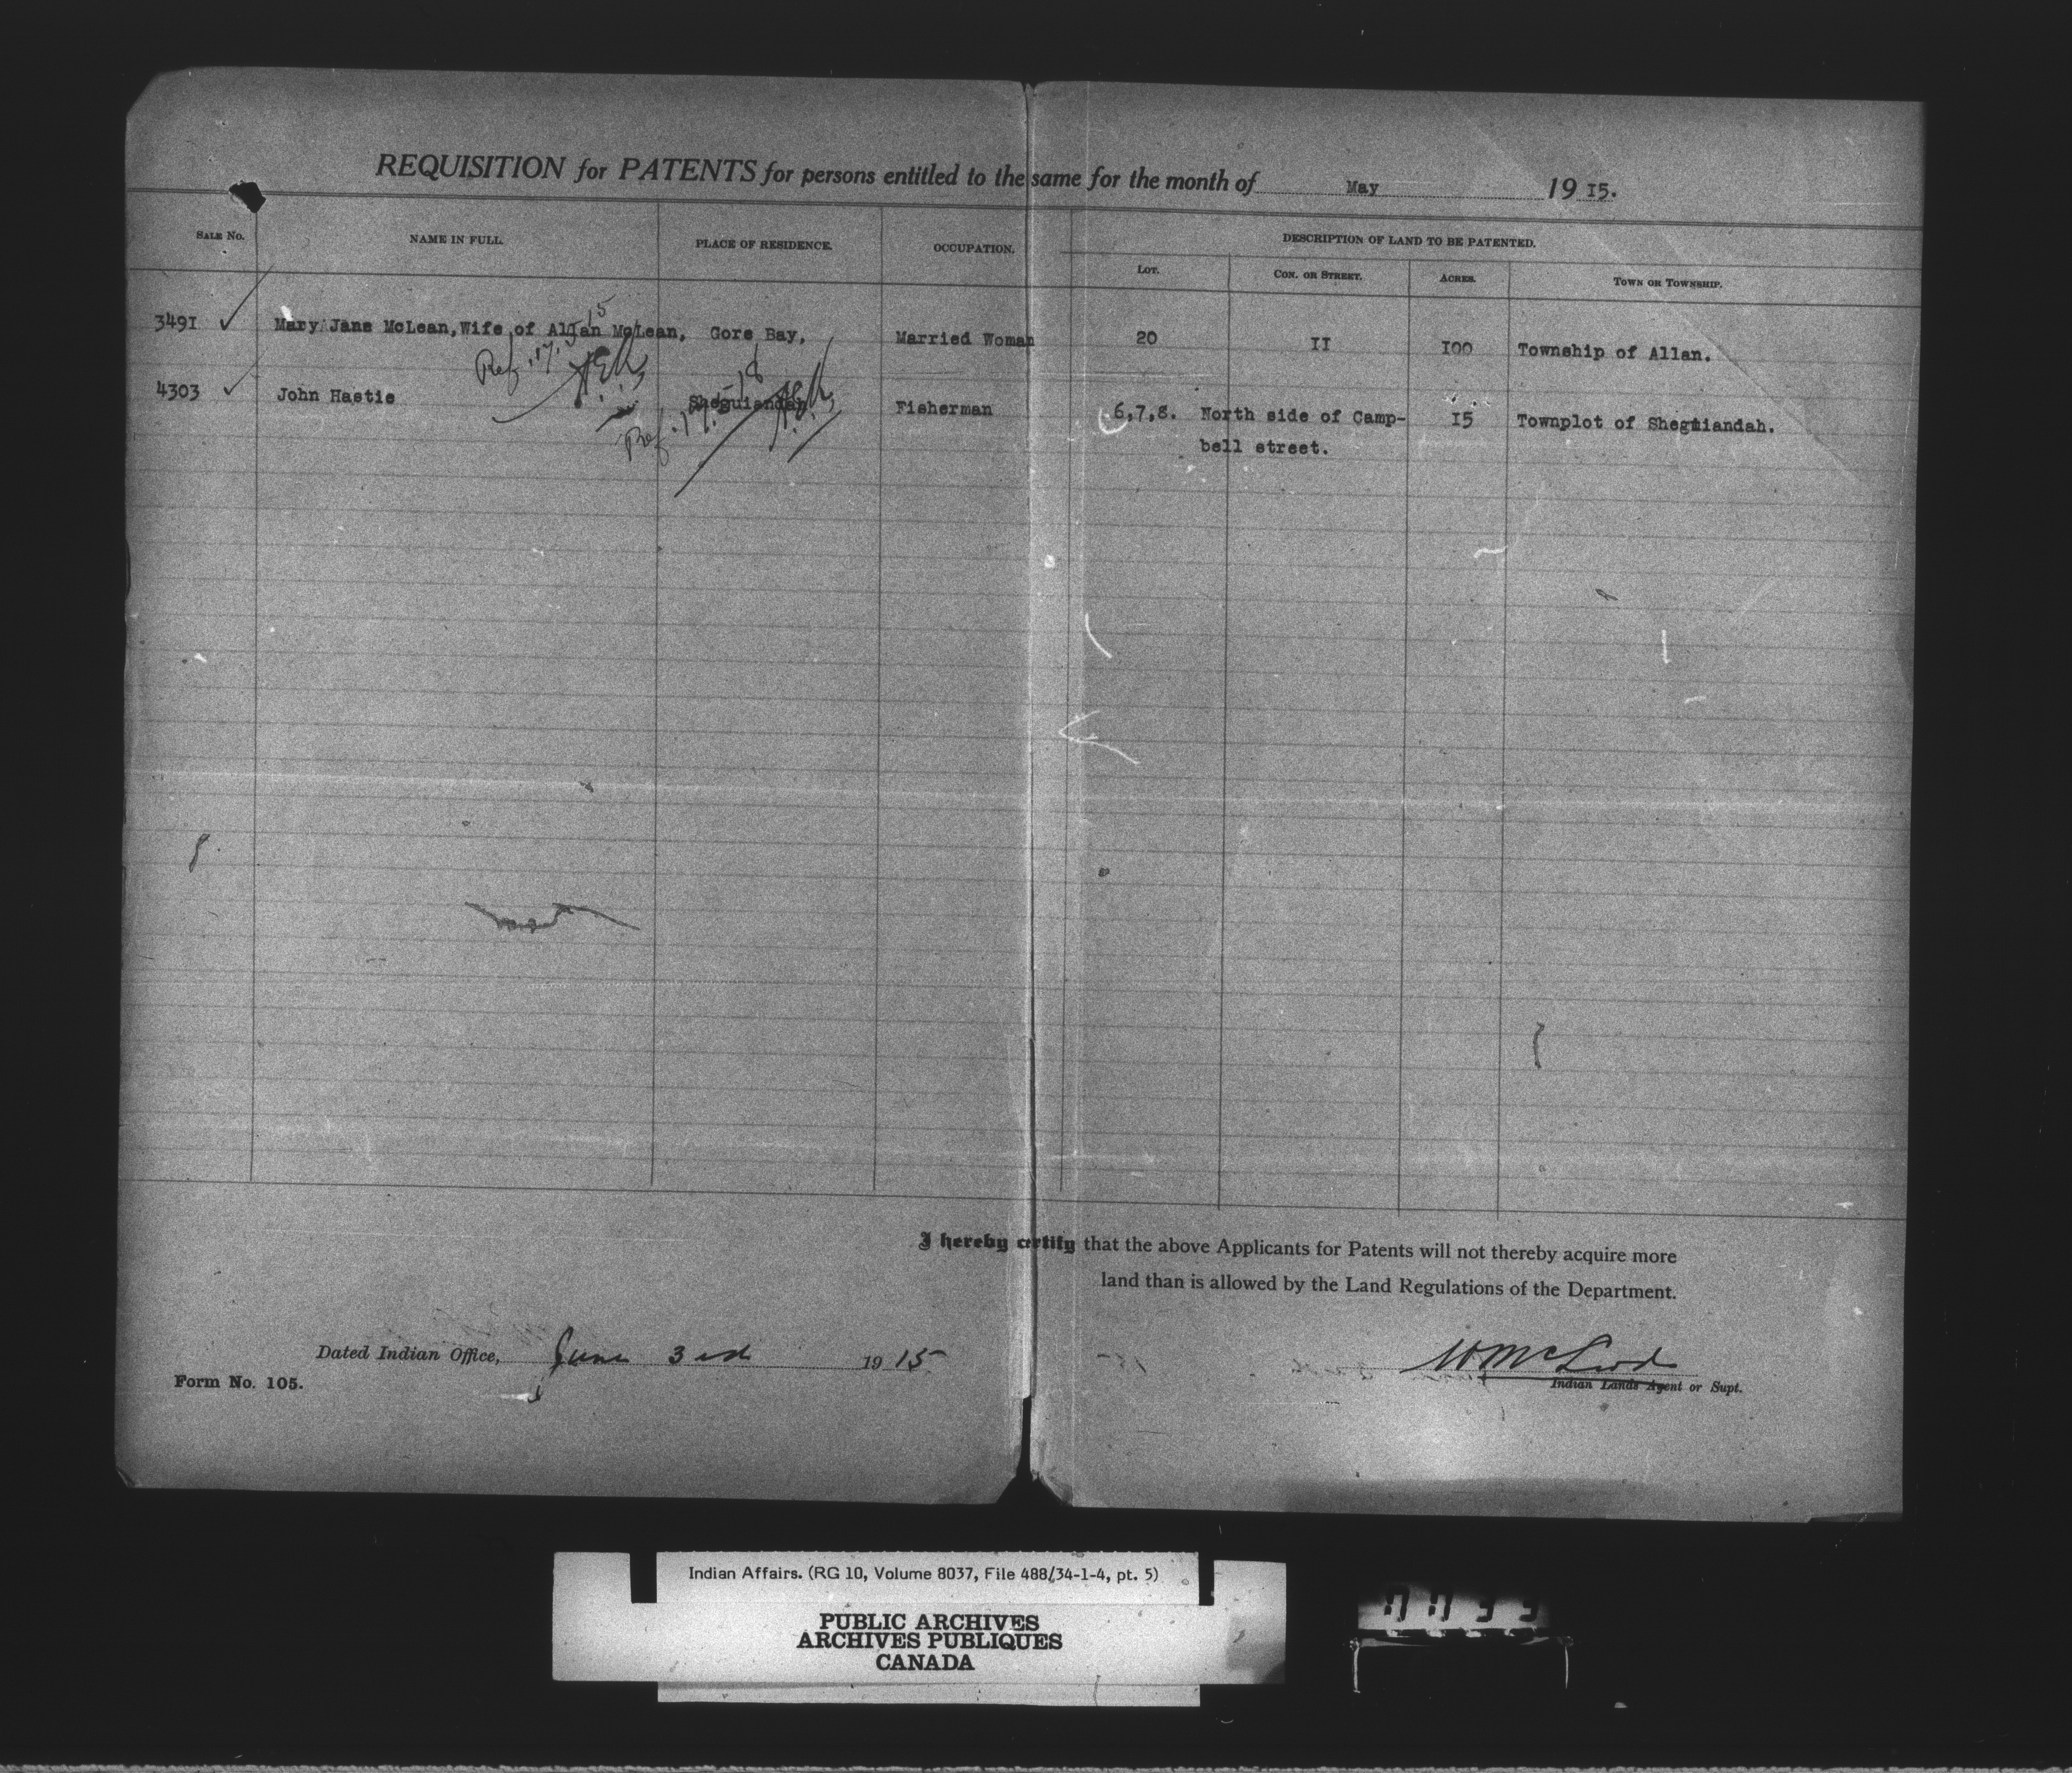 REQUISITION for PATENTS for persons entitled to the same for the month of May 1915.
SALE No. NAME IN FULL. PLACE OF RESIDENCE. OCCUPATION. DESCRIPTION OF LAND TO BE PATENTED.
LOT. CON. OR STREET. ACRES. TOWN OR TOWNSHIP.
3491 Mary Jane McLean, Wife of Allan McLean, Gore Bay, Married Woman 20 II I00 Township of Allan.
Ref. 17.5.15
4303 John Hastie Sheguiandah Fisherman 6,7,8. North side of Camp- I5 Townplot of Sheguiandah.
bell street.
I hereby certify that the above Applicants for Patents will not thereby acquire more
land than is allowed by the Land Regulations of the Department.
Dated Indian Office, June 3rd 1915
Indian Lands Agent or Supt.
Form No. 105.
Indian Affairs. (RG 10, Volume 8037, File 488/34-1-4, pt. 5)
PUBLIC ARCHIVES
ARCHIVES PUBLIQUES
CANADA